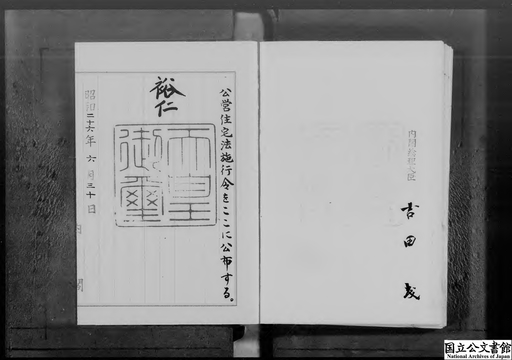 公営住宅法施行令をここに公布する。
裕仁
天皇
御璽
昭和二十六年 六月三十日
内閣総理大臣
吉田茂
国立公文書館
National Archives of Japan